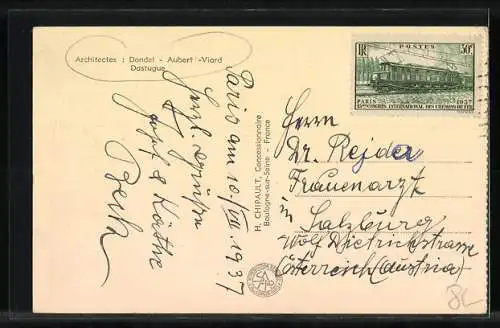 Architectes : Dondel - Aubert - Viard
Dastugue
Paris am 10./VII. 1937
Herzl. Grüße
Josef & Käthe
H. CHIPAULT, Concessionnaire
Boulogne-sur-Seine - France
RF POSTES 50c
PARIS 1937
13me CONGRES INTERNATIONAL DES CHEMINS DE FER
Herrn
Dr. Rejda
Frauenarzt
in Salzburg
Wolf Dietrichstrasse
Österreich (Austria)